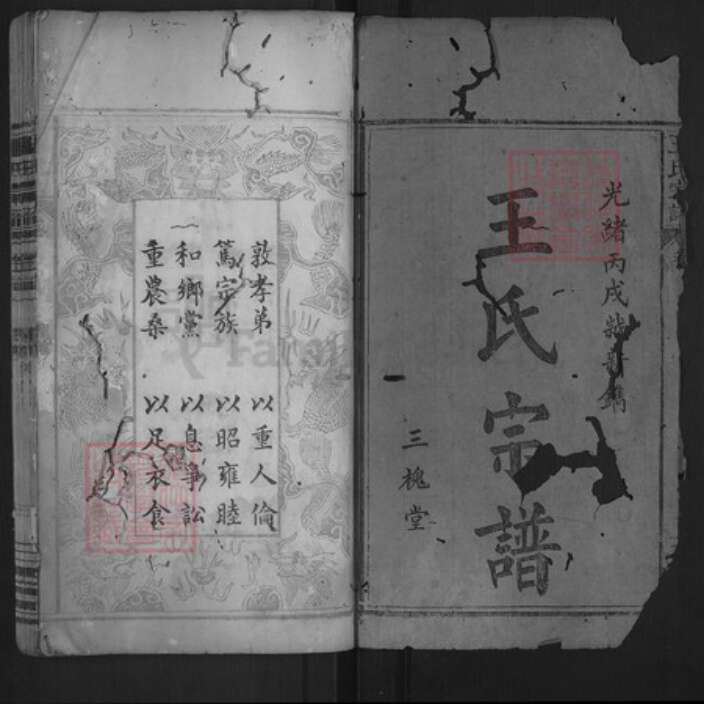 光緒丙戌
王氏宗譜
三槐堂
敦孝弟 以重人倫
篤宗族 以昭雍睦
和鄉黨 以息爭訟
重農桑 以足衣食